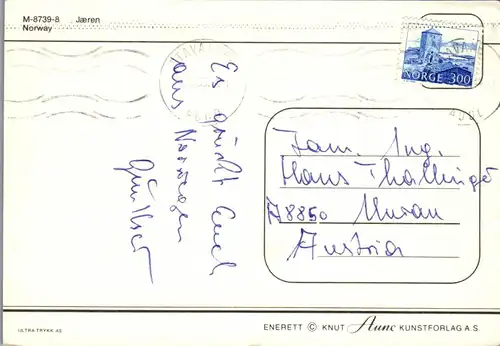 M-8739-8 Jæren
Norway
NORGE 300
Es grüßt Euch
aus Norwegen
Fam. Ing.
Hans Thallinger
A 8850 Murau
Austria
ULTRA-TRYKK AS
ENERETT © KNUT Aune KUNSTFORLAG A.S.